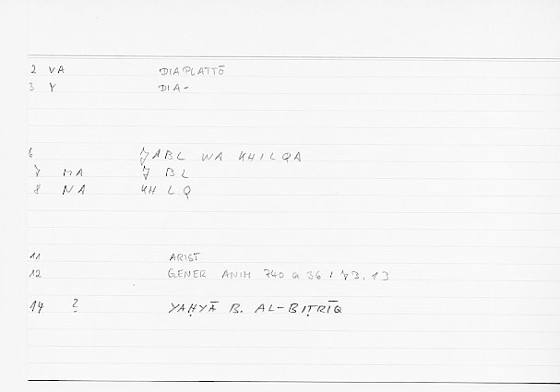 2 VA DIAPLATTŌ
3 Y DIA-
6 ǦABL WA KHILQA
7 MA Ǧ B L
8 NA KH L Q
11 ARIST
12 GENER ANIM 740 a 36 : 73.13
14 ? YAḤYĀ B. AL-BIṬRĪQ